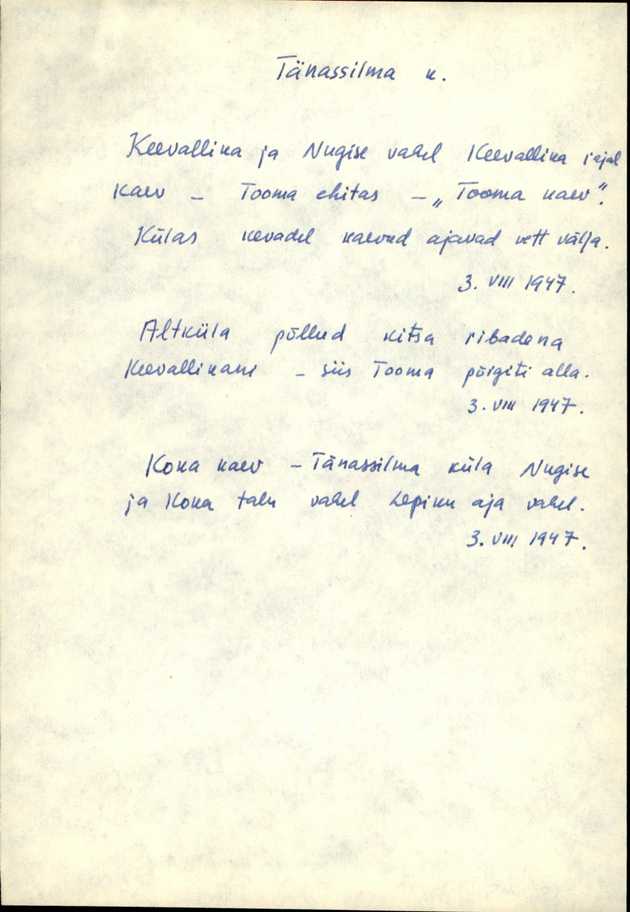 Tänassilma k.
Keevallika ja Nugise vahel Keevallika rajal
kaev – Tooma ehitas – „Tooma kaev".
Külas kevadel kaevud ajavad vett välja.
3. VIII 1947.
Altküla põllud kitsa ribadena
Keevallikani – siis Tooma põigiti alla.
3. VIII 1947.
Koka kaev – Tänassilma küla Nugise
ja Koka talu vahel Lepiku aja vahel.
3. VIII 1947.